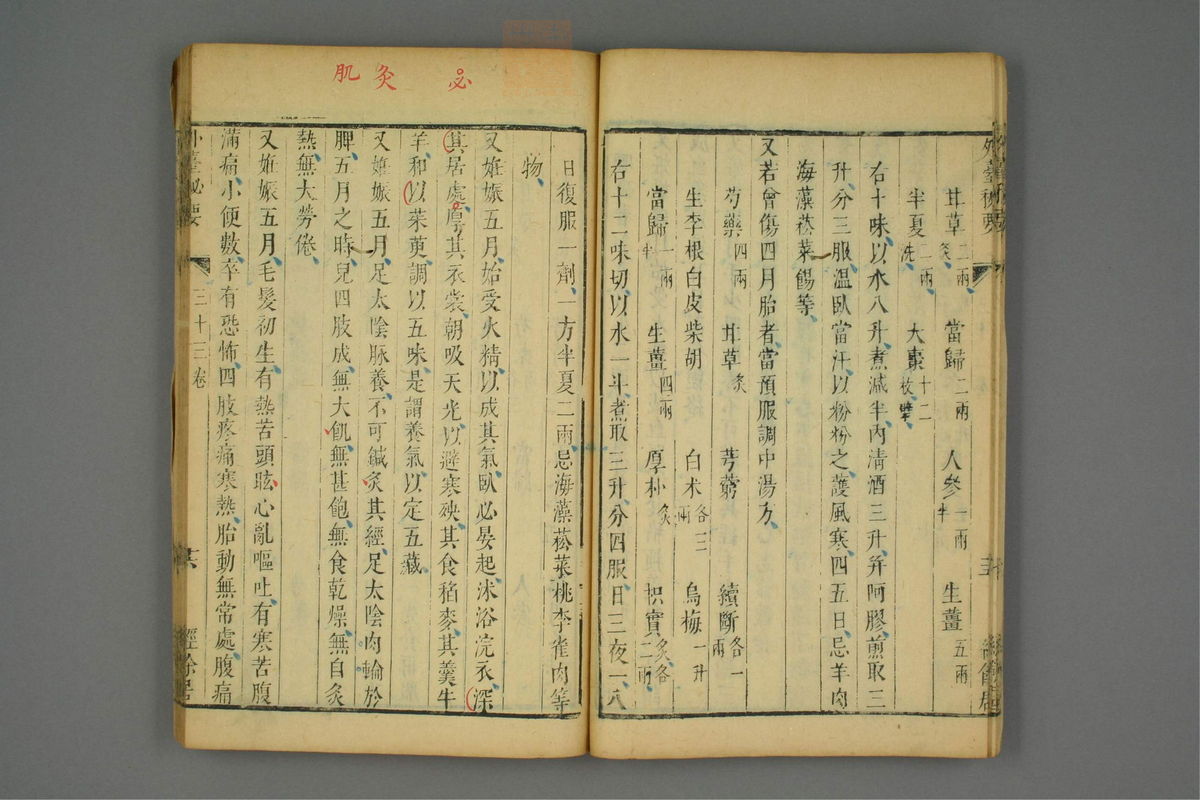 甘草二兩炙 當歸二兩 人參一兩半 生薑五兩
半夏二兩洗 大棗十二枚擘
右十味以水八升煮減半内清酒三升并阿膠煎取三
升分三服温臥當汗以粉粉之護風寒四五日忌羊肉
海藻菘菜餳等
又若曾傷四月胎者當預服調中湯方
芍藥四兩 甘草炙 芎藭 續斷各一兩
生李根白皮 柴胡 白术各三兩 烏梅一升
當歸一兩半 生薑四兩 厚朴炙 枳實炙各二兩
右十二味切以水一斗煮取三升分四服日三夜一八
必 灸 肌
日復服一劑一方半夏二兩忌海藻菘菜桃李雀肉等
物
又姙娠五月始受火精以成其氣臥必晏起沐浴浣衣深
其居處厚其衣裳朝吸天光以避寒殃其食稻麥其羹牛
羊和以茱萸調以五味是謂養氣以定五藏
又姙娠五月足太陰脉養不可鍼灸其經足太陰内輸於
脾五月之時兒四肢成無大飢無甚飽無食乾燥無自炙
熱無大勞倦
又姙娠五月毛髮初生有熱苦頭眩心亂嘔吐有寒苦腹
滿痛小便數卒有恐怖四肢疼痛寒熱胎動無常處腹痛
外臺秘要 三十三卷 共 經餘居